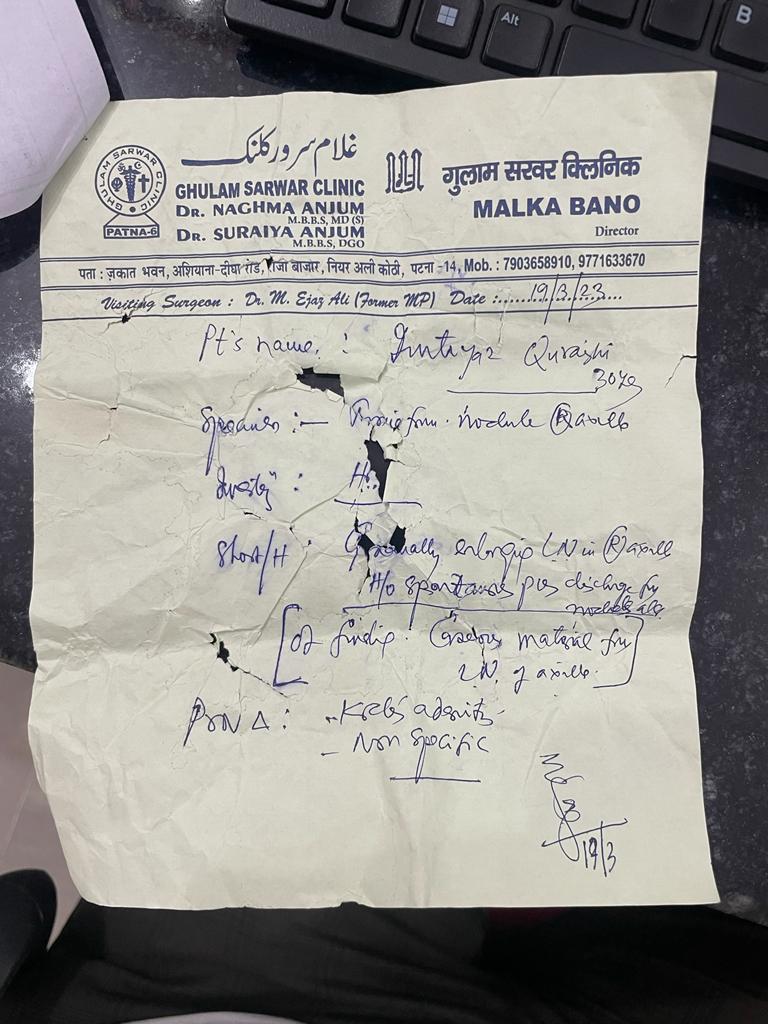 Alt
B
غلام سرور کلنک
GHULAM SARWAR CLINIC
PATNA-6
GHULAM SARWAR CLINIC
DR. NAGHMA ANJUM
M.B.B.S, MD (S)
DR. SURAIYA ANJUM
M.B.B.S, DGO
गुलाम सरवर क्लिनिक
MALKA BANO
Director
पता : ज़कात भवन, अशियाना-दीघा रोड, राजा बाजार, नियर अली कोठी, पटना -14, Mob. : 7903658910, 9771633670
Visiting Surgeon : Dr. M. Ejaz Ali (Former MP) Date :......19/3/23......
Pt's name : Quraishi
30
Specimen :— nodule Ⓡ axilla
:
Short/H : Gradually enlarging LN in Ⓡ axilla
H/o spontaneous pus discharge
[OT finding. material
LN. of axilla.]
Prov Δ :
- Non specific
19/3